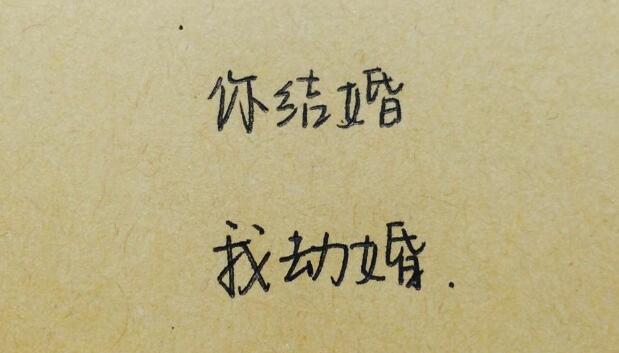 你结婚
我劫婚.